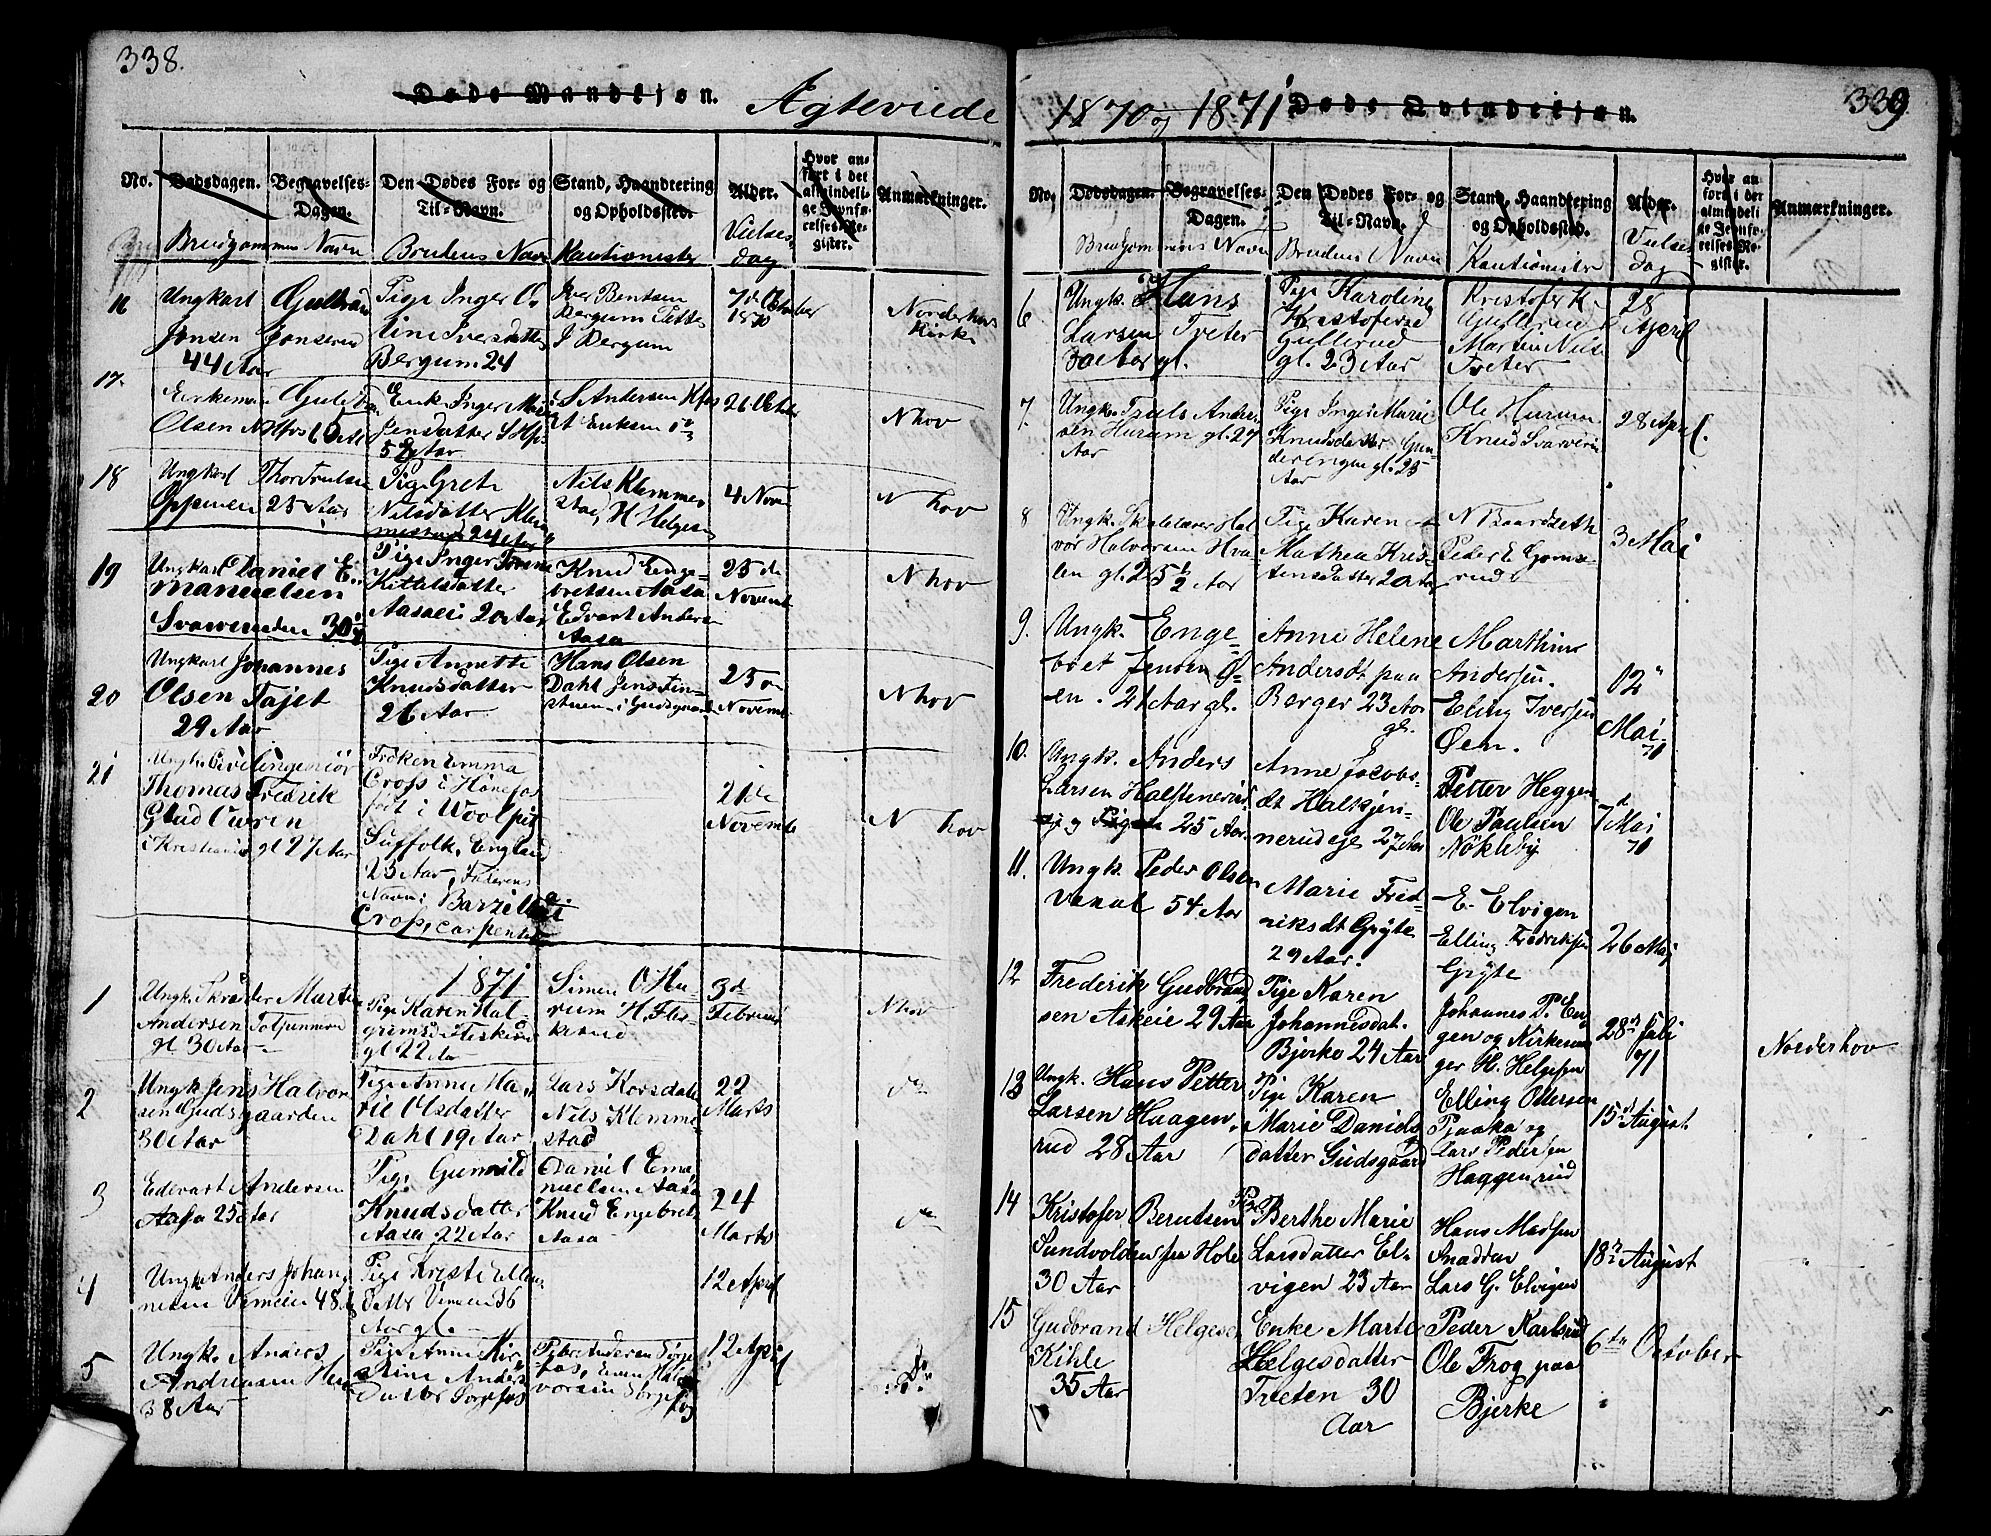 338.
Døde Mandkjøn.
Ægteviede
No.
Dødsdagen.
Begravelses-
Dagen.
Den Dødes For- og
Til-Navn.
Stand, Haandtering
og Opholdssted.
Alder.
Hvor an-
ført i det
almindeli-
ge Jevnfø-
relses-Re-
gister.
Anmærkninger.
Brudgommens Navn
Brudens Navn
Kautionister
Vielses-
dag
16
Ungkarl Gulbran
Jonsen Jonserud
44 Aar
Pige Inger O
line Iversdatter
Bergum 24
Iver Bentsen
Bergum Petter
J Bergum
7de October
1870
Norderhovs
Kirke
17.
Enkeman Gulbran
Olsen Hfos 65 Aar
Enke Inger Marie
Jensdatter Hfos
52 Aar
S Andersen Hfos
A Eriksen
21 October
N hov
18
Ungkarl Thor Trulsen
Oppenen 25 Aar
Pige Grete
Nilsdatter Klem
mestad 24 Aar
Nils Klemme
stad, H Helgesen
4 Novem
N hov
19
Ungkarl Daniel E..
manuelsen
Svarveruden 30
Pige Inger
Kittelsdatter
Aasaeie 20 Aar
Knud Enge-
bretsen Aasa
Edvart Anders
Aasa
25 de
Novemb
N hov
20
Ungkarl Johannes
Olsen Tajet
29 Aar
Pige Annette
Knudsdatter
26 Aar
Hans Olsen
Dahl Jens
stuen i Gudsgaard
25 de
Novemb
N hov
21
Ungk. Civilingeniör
Thomas Fredrik
Glud Owren
i Kristiania gl 27 Aar
Fröken Emma
Cross i Hönefos
född i Woolpit
Suffolk, England
25 Aar, Faderens
Navn: Barzillai
Cross, carpenter
21 de
Novembe
N hov
1871
1
Ungk. Skräder Martin
Andersen
gl 30 Aar
Pige Karen Hal-
grimsd. Fleskerud
gl 22 Aar
Simen O Hu-
rum H. Fles-
kerud
3d
Februar
N hov
2
Ungk Jens Halvor
sen Gudsgaarden
30 Aar
Pige Anne Ma
rie Olsdatter
Dahl 19 Aar
Lars Korsdale
Nils Klemme-
stad
22
Marts
do
3
Edevart Andersen
Aasa 25 Aar
Pige Gunnild
Knudsdatter
Aasa 22 Aar
Daniel Ema
nuelsen Aasa
Knud Engebrets
Aasa
24
Marts
do
4
Ungk Anders Johan
nesen Vemeie 48
Pige Kristi Ellen
Datter Vemeie 36
Aar gl.
12 April
5
Ungk. Anders
Andreasen
38 Aar
Pige Anne Kir
stine Anders
Datter Sörgefos
Peder Andersen Sörge
fos, Even Hal
vorsen Sörge
fos
12 April
do
1870 og 1871
Døde Qvindekjøn.
339
No.
Dødsdagen.
Begravelses-
Dagen.
Den Dødes For- og
Til-Navn.
Stand, Haandtering
og Opholdssted.
Alder.
Hvor an-
ført i det
almindeli-
ge Jevnfø-
relses-Re-
gister.
Anmærkninger.
Brudgommens Navn
Brudens Navn
Kautionister
Vielses-
dag
6
Ungk. Hans
Larsen Tveter
30 gl.
Pige Karoline
Kristofersd
Gullerud
gl. 23 Aar
Kristofer K.
Gullerud
Martin Nils
Tveter
28
April
7.
Ungk. Truls Ander-
sen Hurum gl. 27
Aar
Pige Inger Marie
Knudsdatter Gun
derengen gl. 25
Aar
Ole Hurum
Knud Svarveru
28 April
8
Ungk. Skolelærer Hal
vor Halvorsen Hva
len gl. 25 ½ Aar
Pige Karen
Mathea Kris-
tensdatter 20 Aar
N Baardseth
Peder E. Gomse
rud
3 Mai
9.
Ungk. Enge
bret Jensen Ø-
en. 21 Aar gl.
Anne Helene
Andersdt paa
Berger 23 Aar
gl.
Marthin
Andersen.
Eling Iversen
Øen.
12
Mai
71
10.
Ungk. Anders
Larsen Halstenrud
25 Aar
Anne Jacobs-
dt Halkjen-
nerudeje 27 Aar
Petter Heggen
Ole Paulsen
Nökleby
7 Mai
71
11.
Ungk. Peder Olsen
Veaal 54 Aar
Marie Fred-
riksdt Gryte
29 Aar.
E. Elvigen
Elling Frederiksen
Gryte
26 Maj
12
Frederik Gudbrand
sen Askeie 29 Aar
Pige Karen
Johannesdat.
Bjerke 24 Aar
Johannes P. En
gen og Kirkesan
ger H. Helgesen
28de Juli
71
Norderhov
13
Ungk. Hans Petter
Larsen Haagen
rud 28 Aar
Pige Karen
Marie Daniels
datter Gudsgaard
Elling Ottersen
Pjaaka og
Lars Pedersen
Haggenrud
15d August
14
Kristofer Berntsen
Sundvolden fra Hole
30 Aar
Pige Berthe Marie
Larsdatter El-
vigen 23 Aar
Hans Madsen
Snadran
Lars G. Elvigen
18de August
15
Gudbrand Helgesen
Kihle
35 Aar
Enke Marte
Helgesdatter
Tveten 30
Aar
Peder Karlsrud
Ole Frog paa
Bjerke
6te October